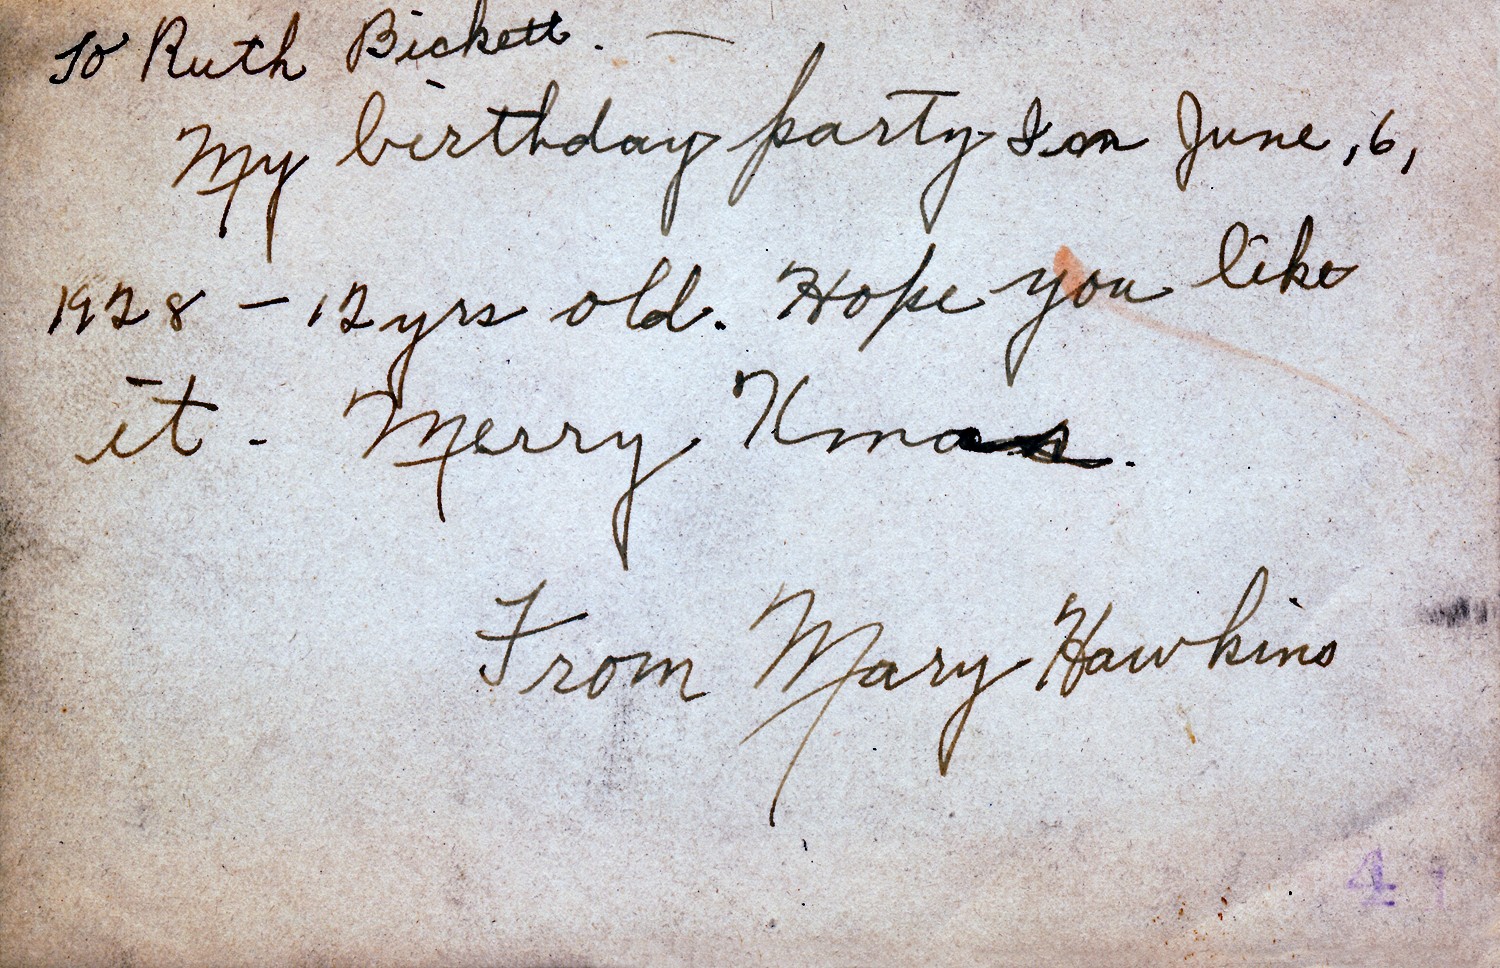 To Ruth Bickett. —
My birthday party on June, 6,
1928 – 12 yrs old. Hope you like
it - Merry Xmas.
From Mary Hawkins
4